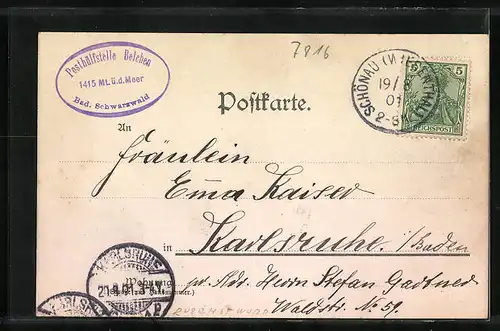 7816
Posthülfstelle Belchen
1415 Mt. ü. d. Meer
Bad. Schwarzwald
SCHÖNAU (WIESENTHAL)
19/8
01
2-3N
5
REICHSPOST
Postkarte.
An
Fräulein
Emma Kaiser
in Karlsruhe. /Baden
Wohnung
pr. Adr. Herrn Stefan Gartner
Waldstr. No 59.
KARLSRUHE
21.8.01
KARLSR